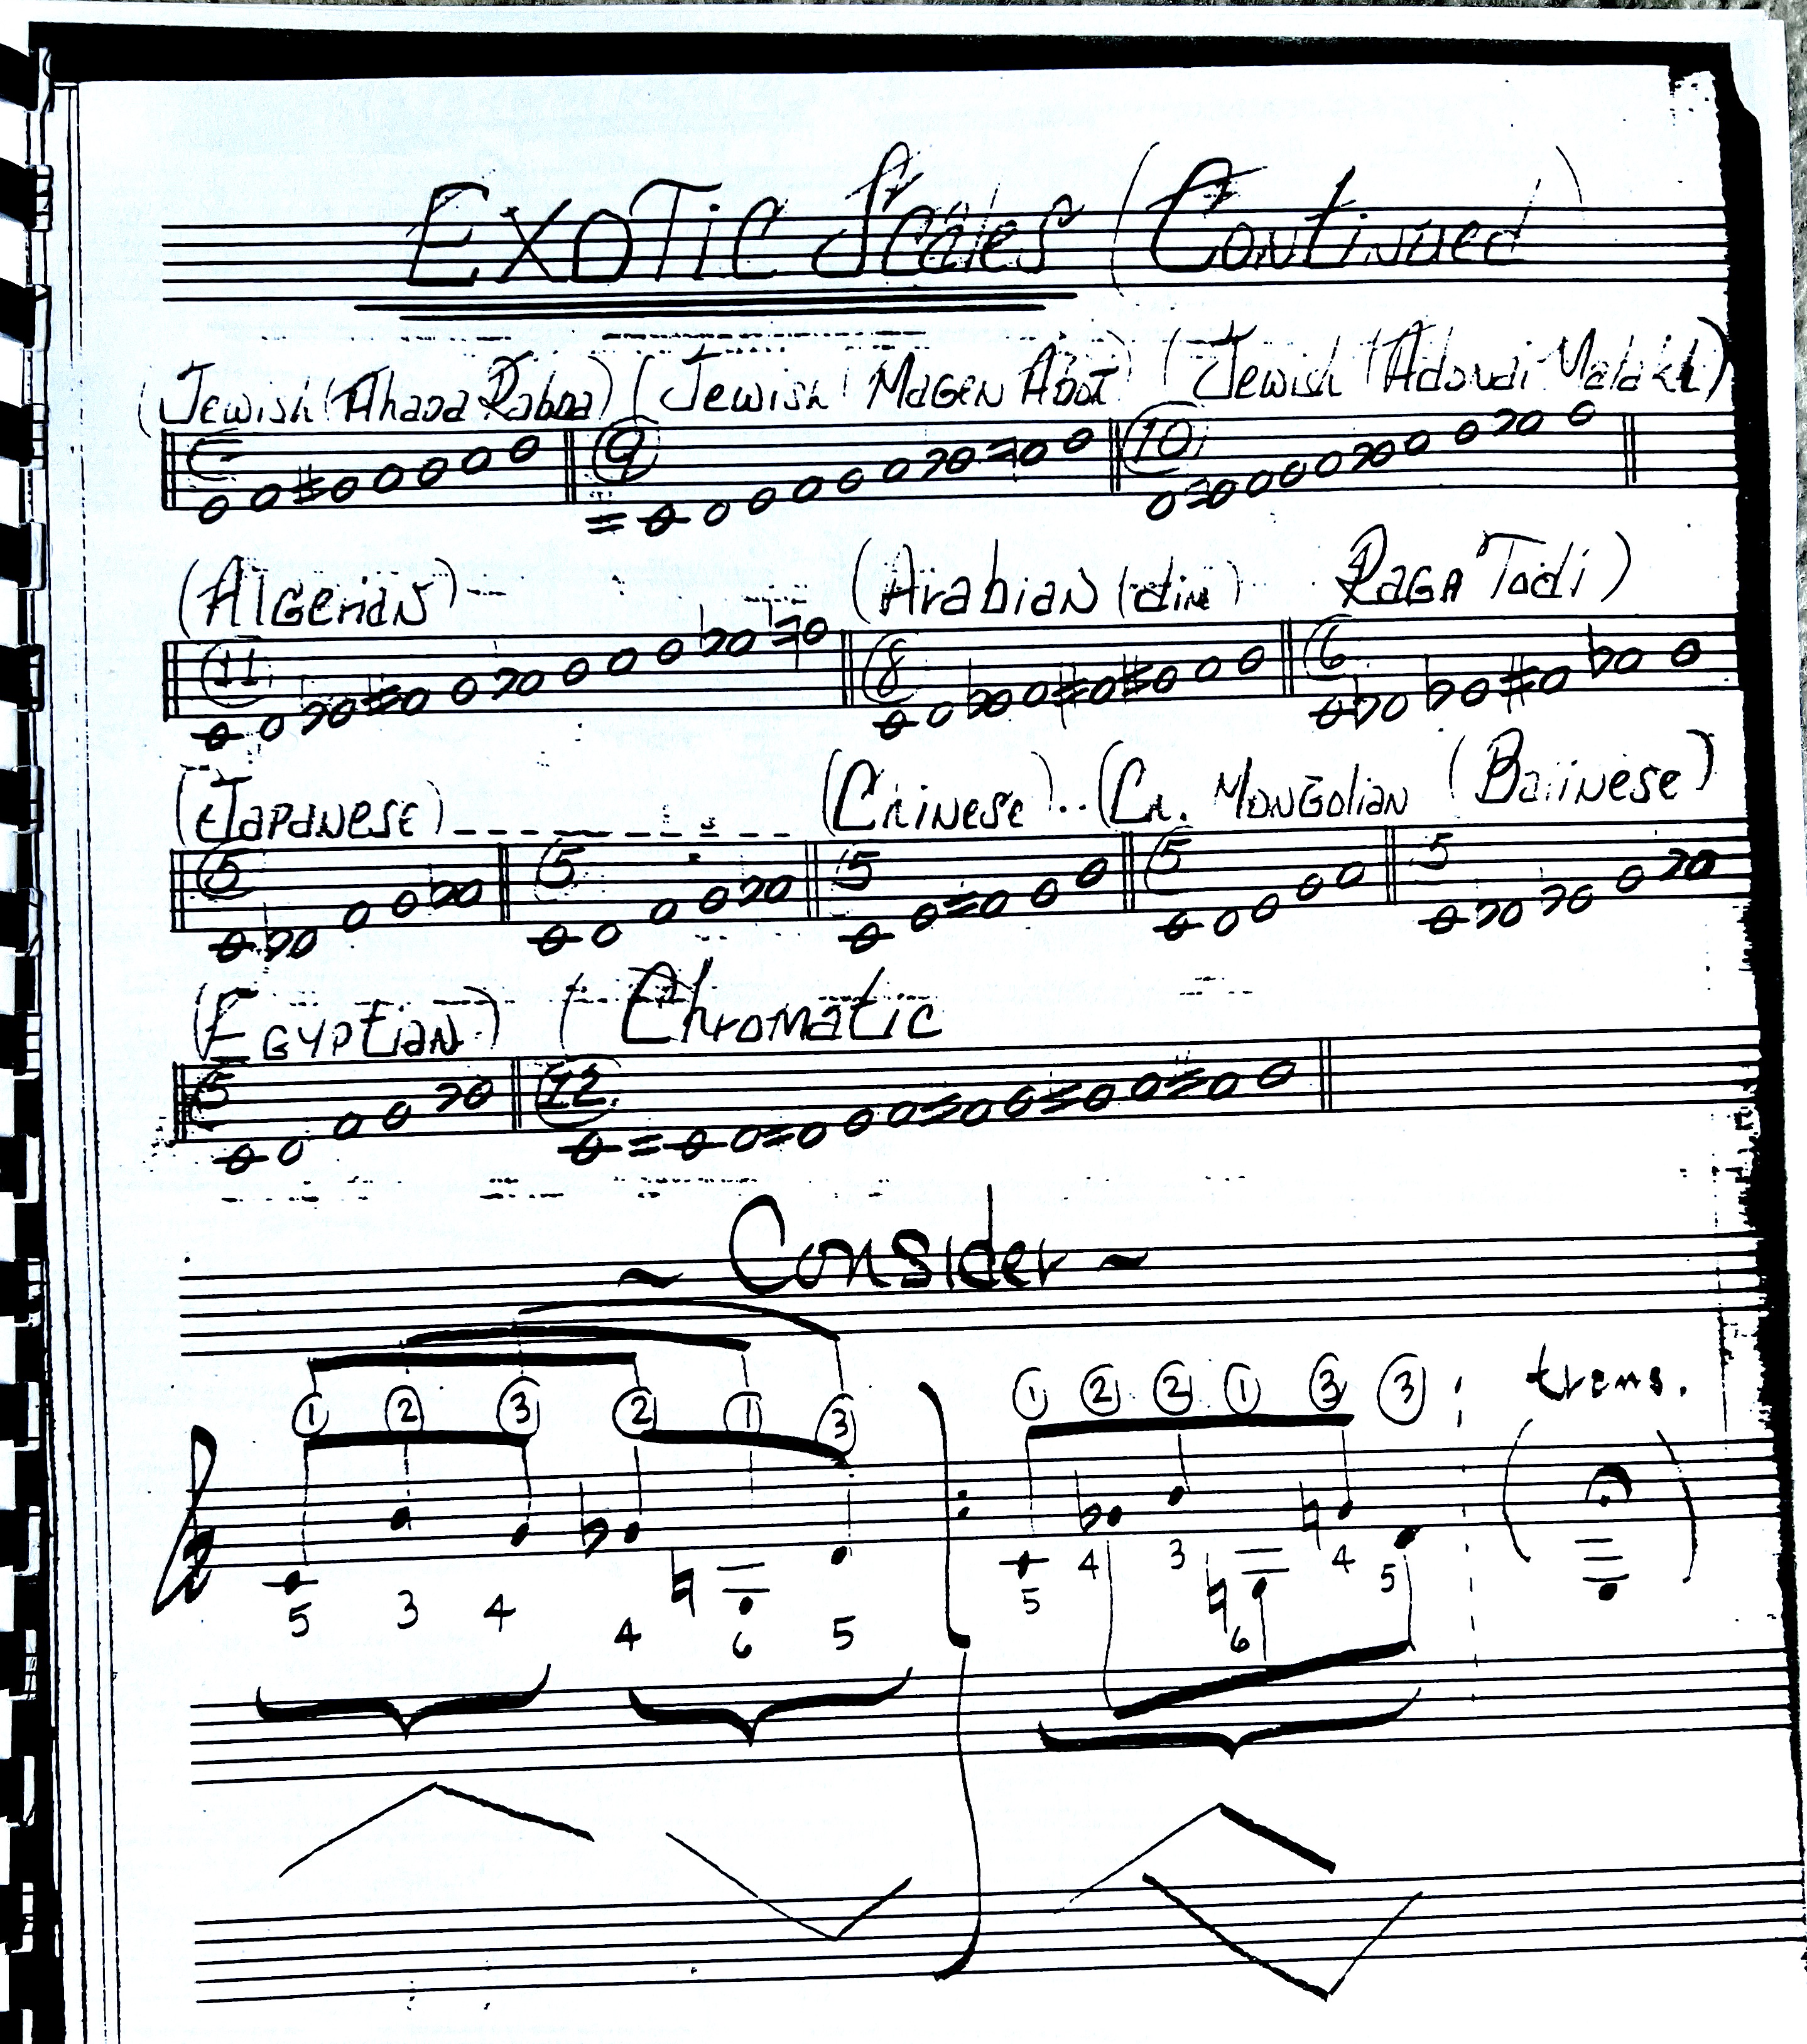 Exotic Scales (Continued)
(Jewish (Ahava Rabba) (Jewish (Magen Abot) (Jewish (Adonai Malakh)
9 10
(Algerian) (Arabian (dim) Raga Todi)
11 8 6
(Japanese) (Chinese) (Ch. Mongolian (Balinese)
5 5 5 5 5
(Egyptian) ( Chromatic
5 12
~ Consider ~
1 2 3 2 1 3 1 2 2 1 3 3 trems.
5 3 4 4 6 5 5 4 3 6 4 5